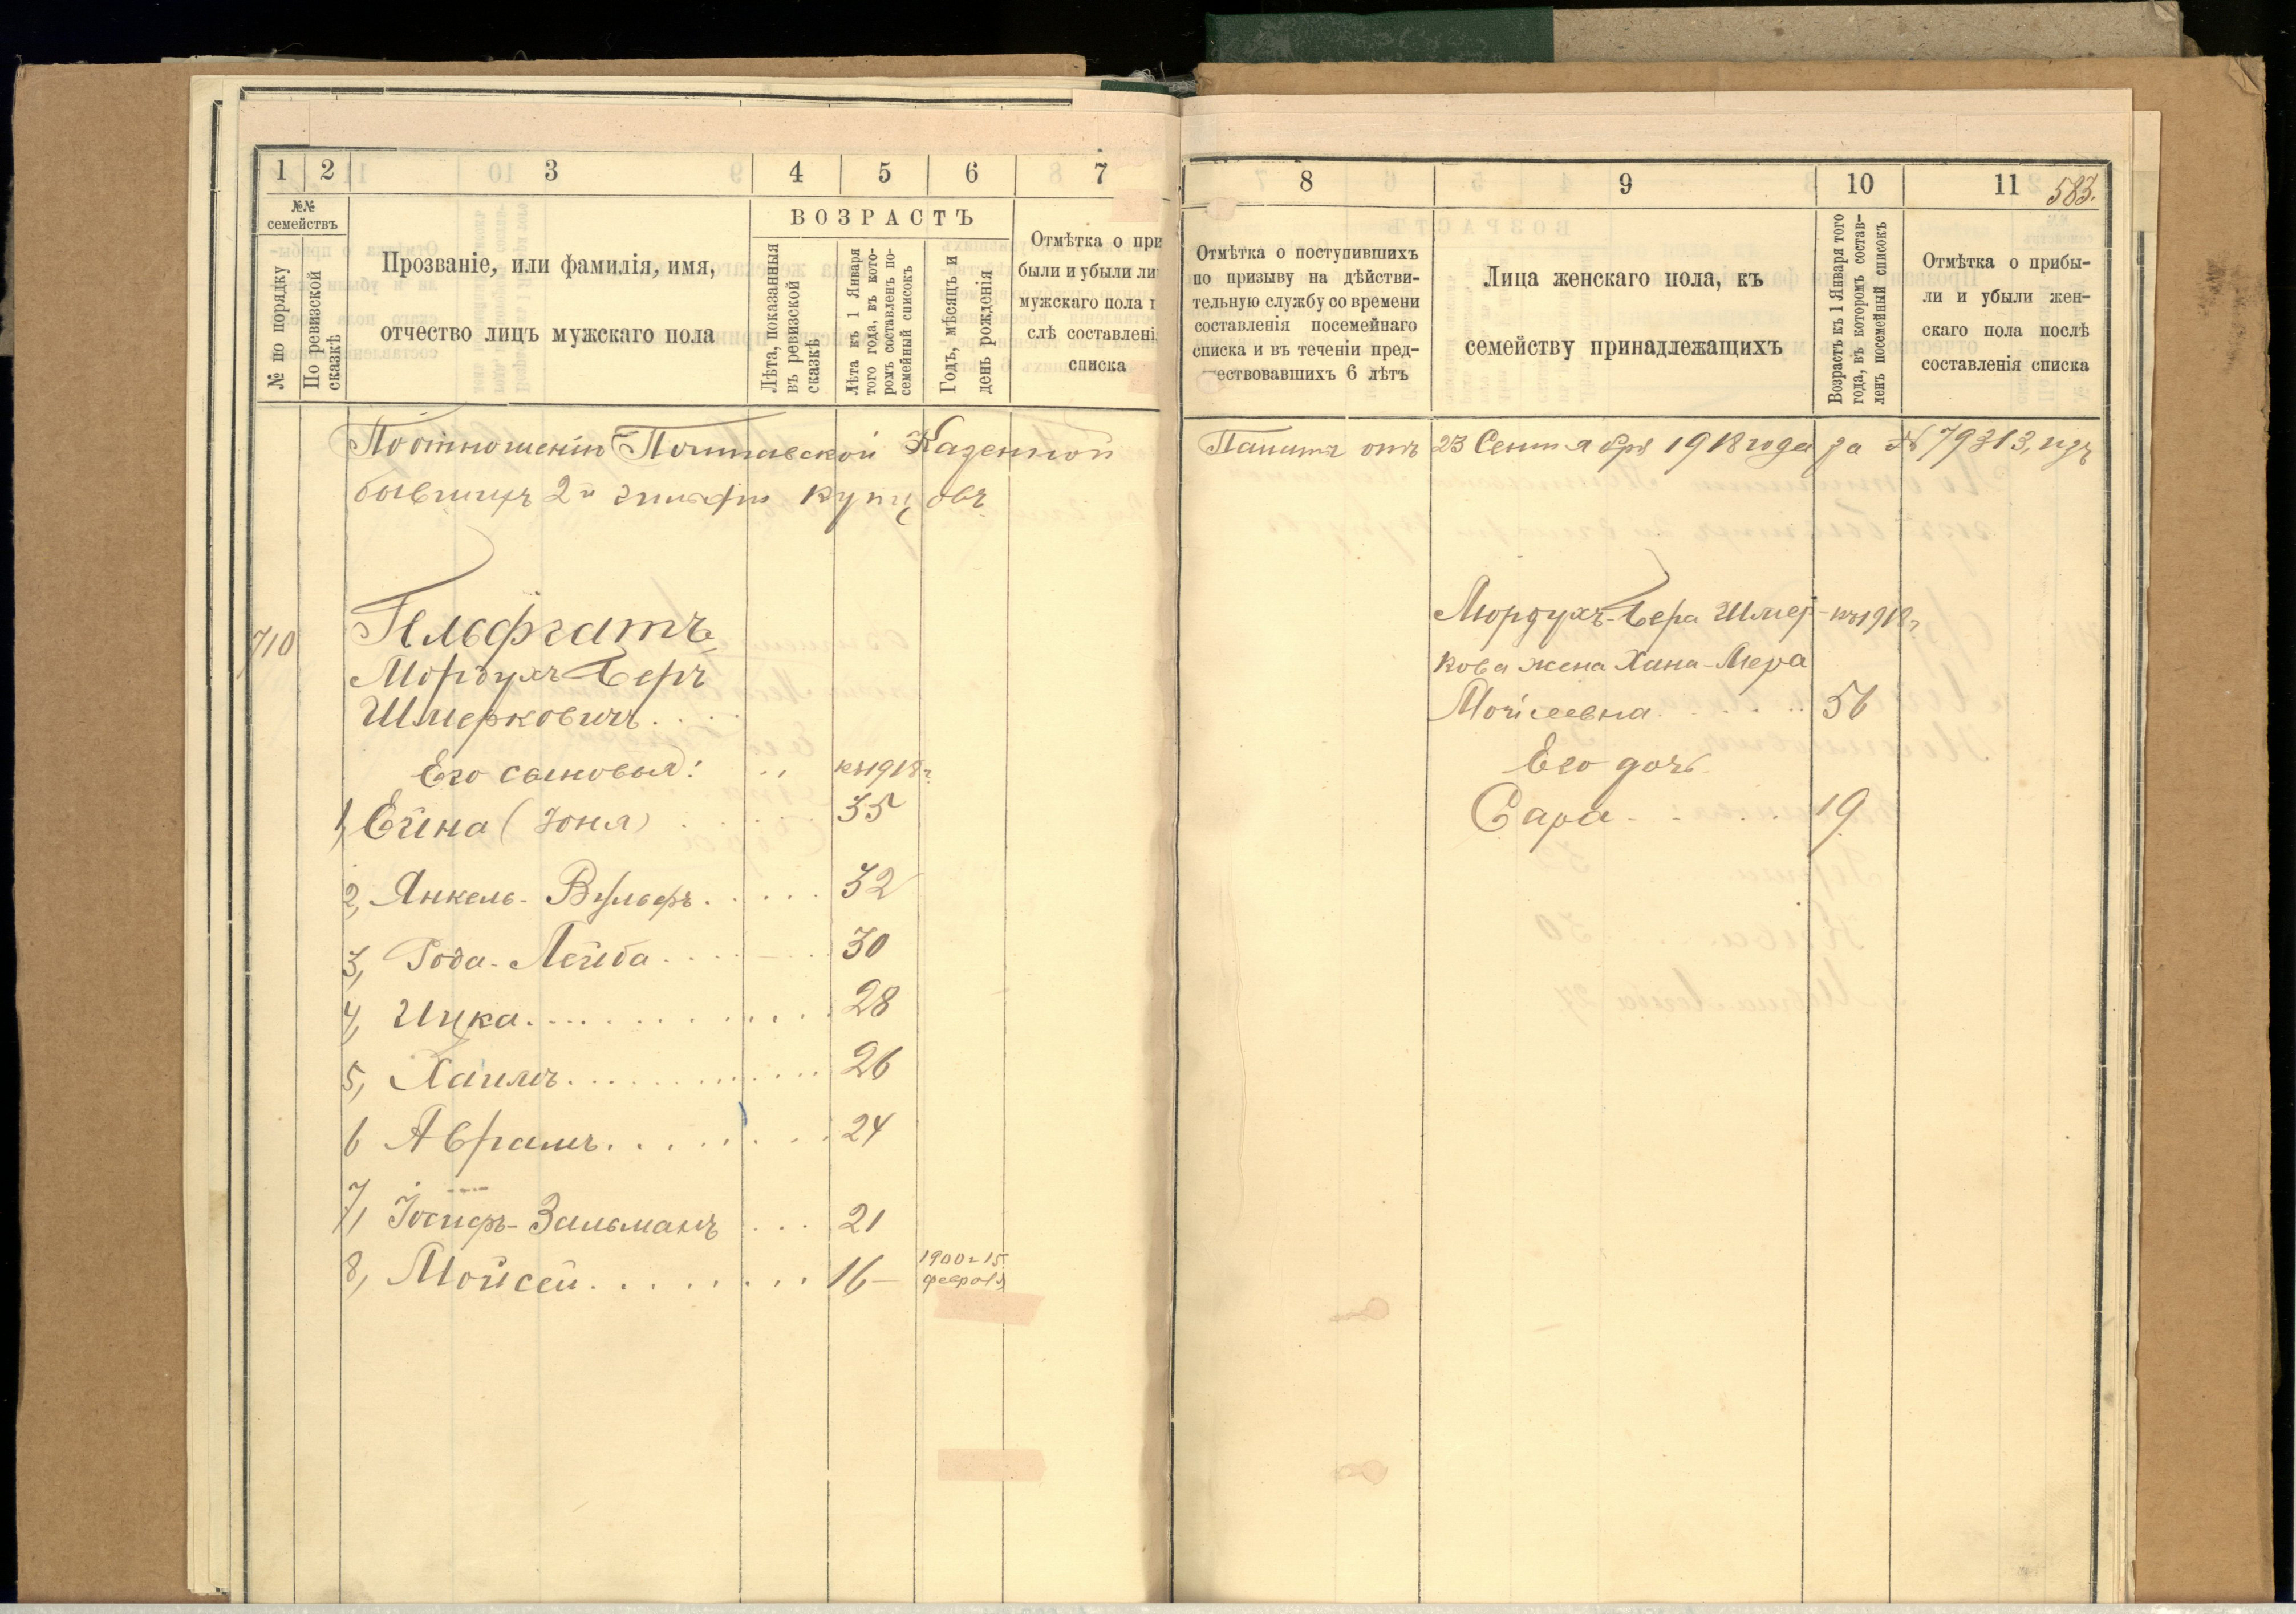 1 2 3 4 5 6 7
№№ семействъ
№ по порядку
По ревизской сказкѣ
Прозваніе, или фамилія, имя,
отчество лицъ мужскаго пола
ВОЗРАСТЪ
Лѣта, показанныя
въ ревизской
сказкѣ
Лѣта къ 1 Января
того года, въ кото-
ромъ составленъ по-
семейный списокъ
Годъ, мѣсяцъ и
день рожденія
Отмѣтка о при
были и убыли ли
мужскаго пола п
слѣ составлені
списка
По отношенію Полтавской Казенной
бывшихъ 2й гильдіи купцовъ
710
Гельфгатъ
Мордухъ-Беръ
Шмерковичъ . . . .
Его сыновья: къ 1918 г.
1, Ейна (Зоня) . . . . 35
2, Янкель-Вульфъ . . . . . 32
3, Года-Лейба . . . . . 30
4, Ицка . . . . . . . . 28
5, Хаимъ . . . . . . . . 26
6 Абрамъ . . . . . . . 24
7, Іосифъ-Зальманъ . . . 21
8, Мойсей . . . . . . . 16 — 1900 г. 15
февраля
8 9 10 11
583.
Отмѣтка о поступившихъ
по призыву на дѣйстви-
тельную службу со времени
составленія посемейнаго
списка и въ теченіи пред-
ествовавшихъ 6 лѣтъ
Лица женскаго пола, къ
семейству принадлежащихъ
Возрастъ къ 1 Января того
года, въ которомъ состав-
ленъ посемейный списокъ
Отмѣтка о прибы-
ли и убыли жен-
скаго пола послѣ
составленія списка
Палаты отъ 23 Сентября 1918 года за № 79313, изъ
Мордухъ-Бера Шмер- къ 1918 г.
кова жена Хана-Мера
Мойсеевна . . . . . 56
Его дочь
Сара . . . . . 19